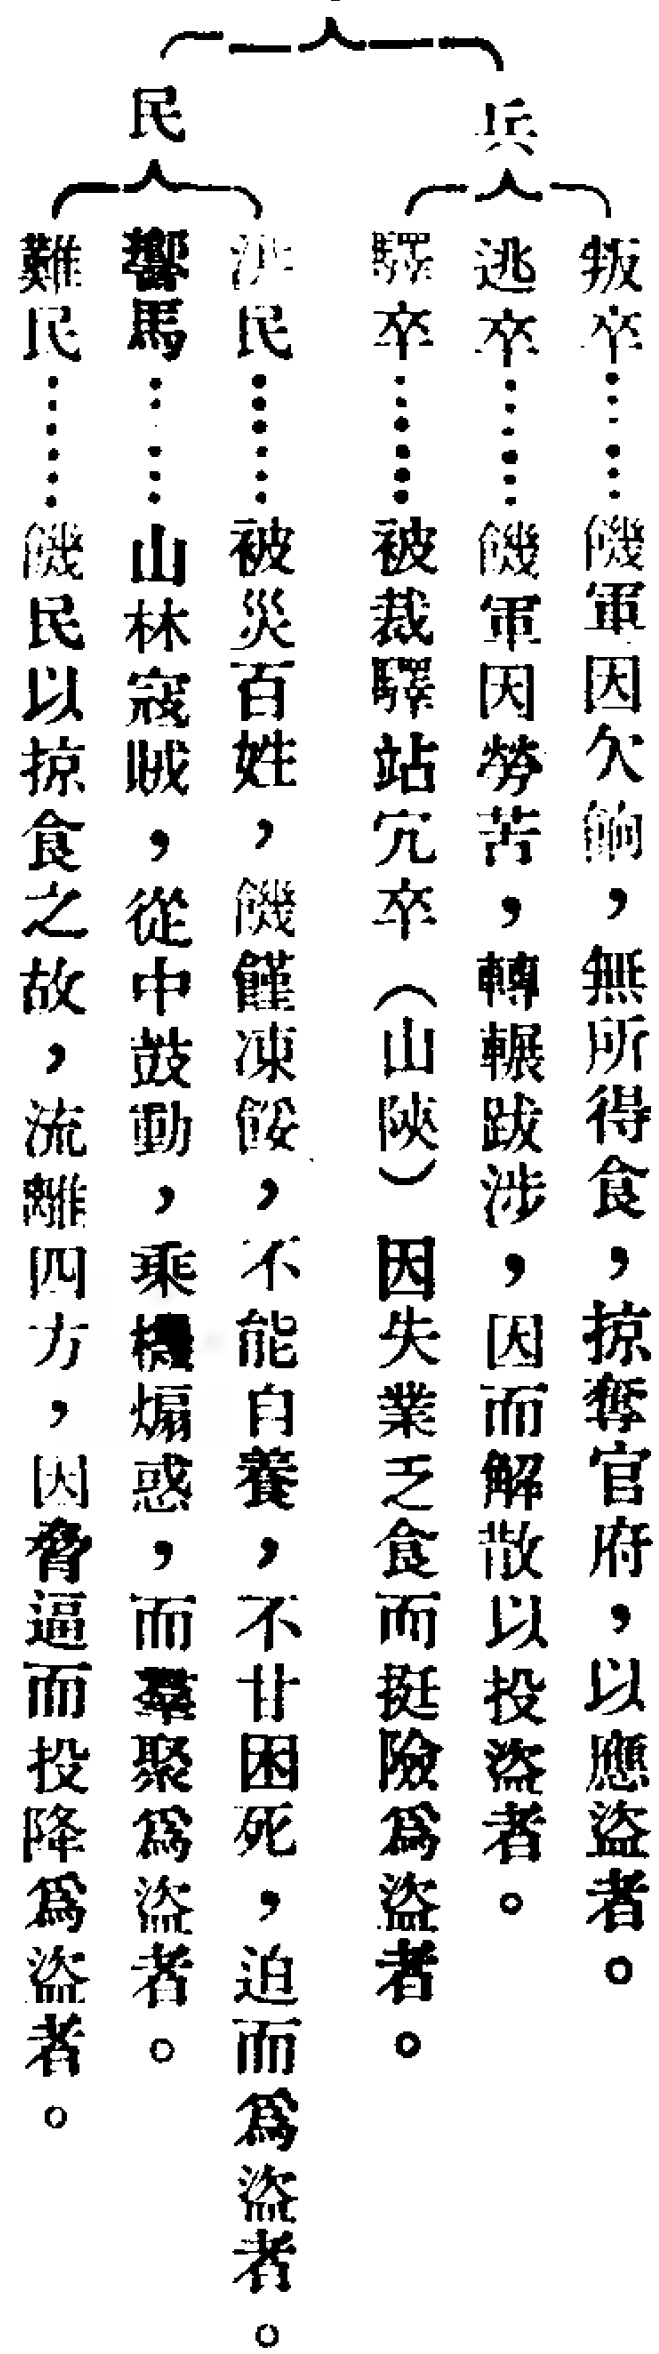 兵
叛卒……饑軍因欠餉，無所得食，掠奪官府，以應盜者。
逃卒……饑軍因勞苦，轉輾跋涉，因而解散以投盜者。
驛卒……被裁驛站冗卒（山陝）因失業乏食而挺險爲盜者。
民
民……被災百姓，饑饉凍餒，不能自養，不甘困死，迫而爲盜者。
響馬……山林寇賊，從中鼓動，乘機煽惑，而羣聚爲盜者。
難民……饑民以掠食之故，流離四方，因脅逼而投降爲盜者。